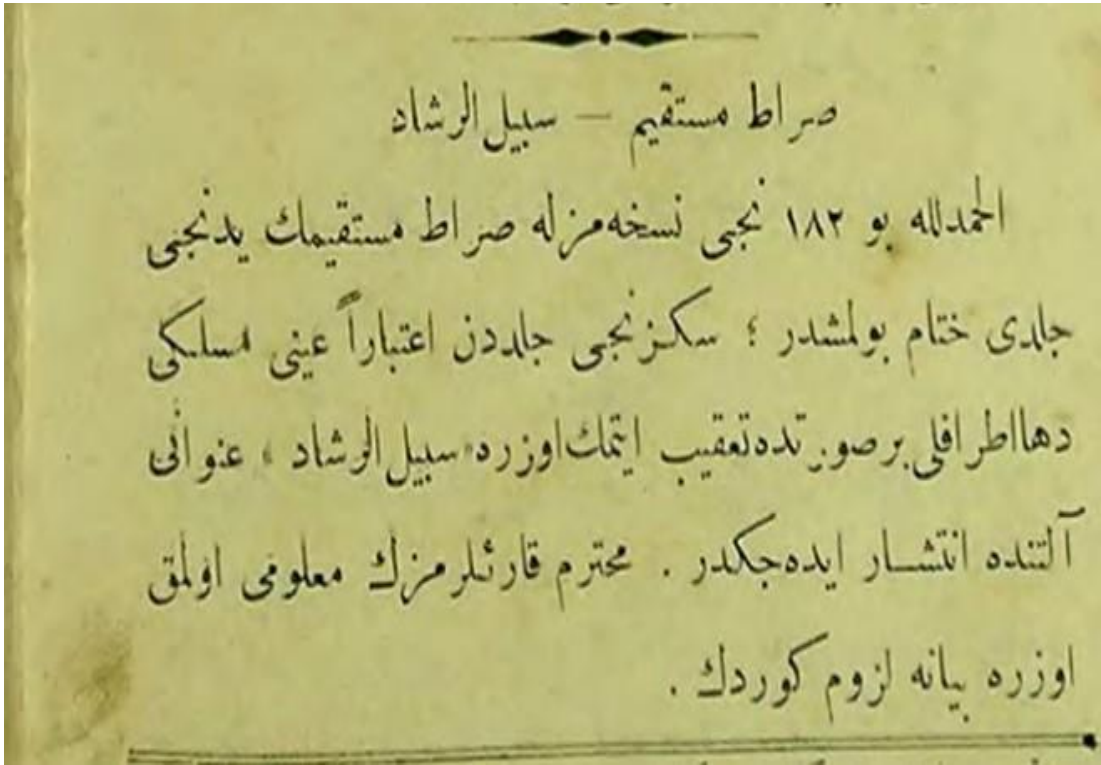 صراط مستقیم — سبیل الرشاد
الحمدلله بو ١٨٢ نجی نسخه‌مزله صراط مستقیمك یدنجی
جلدی ختام بولمشدر ؛ سکزنجی جلددن اعتباراً عینی مسلکی
دها اطرافلی برصورتده تعقیب ایتمك اوزره «سبیل الرشاد» عنوانی
آلتنده انتشار ایده‌جکدر . محترم قارئلرمزك معلومی اولمق
اوزره بیانه لزوم كوردك .